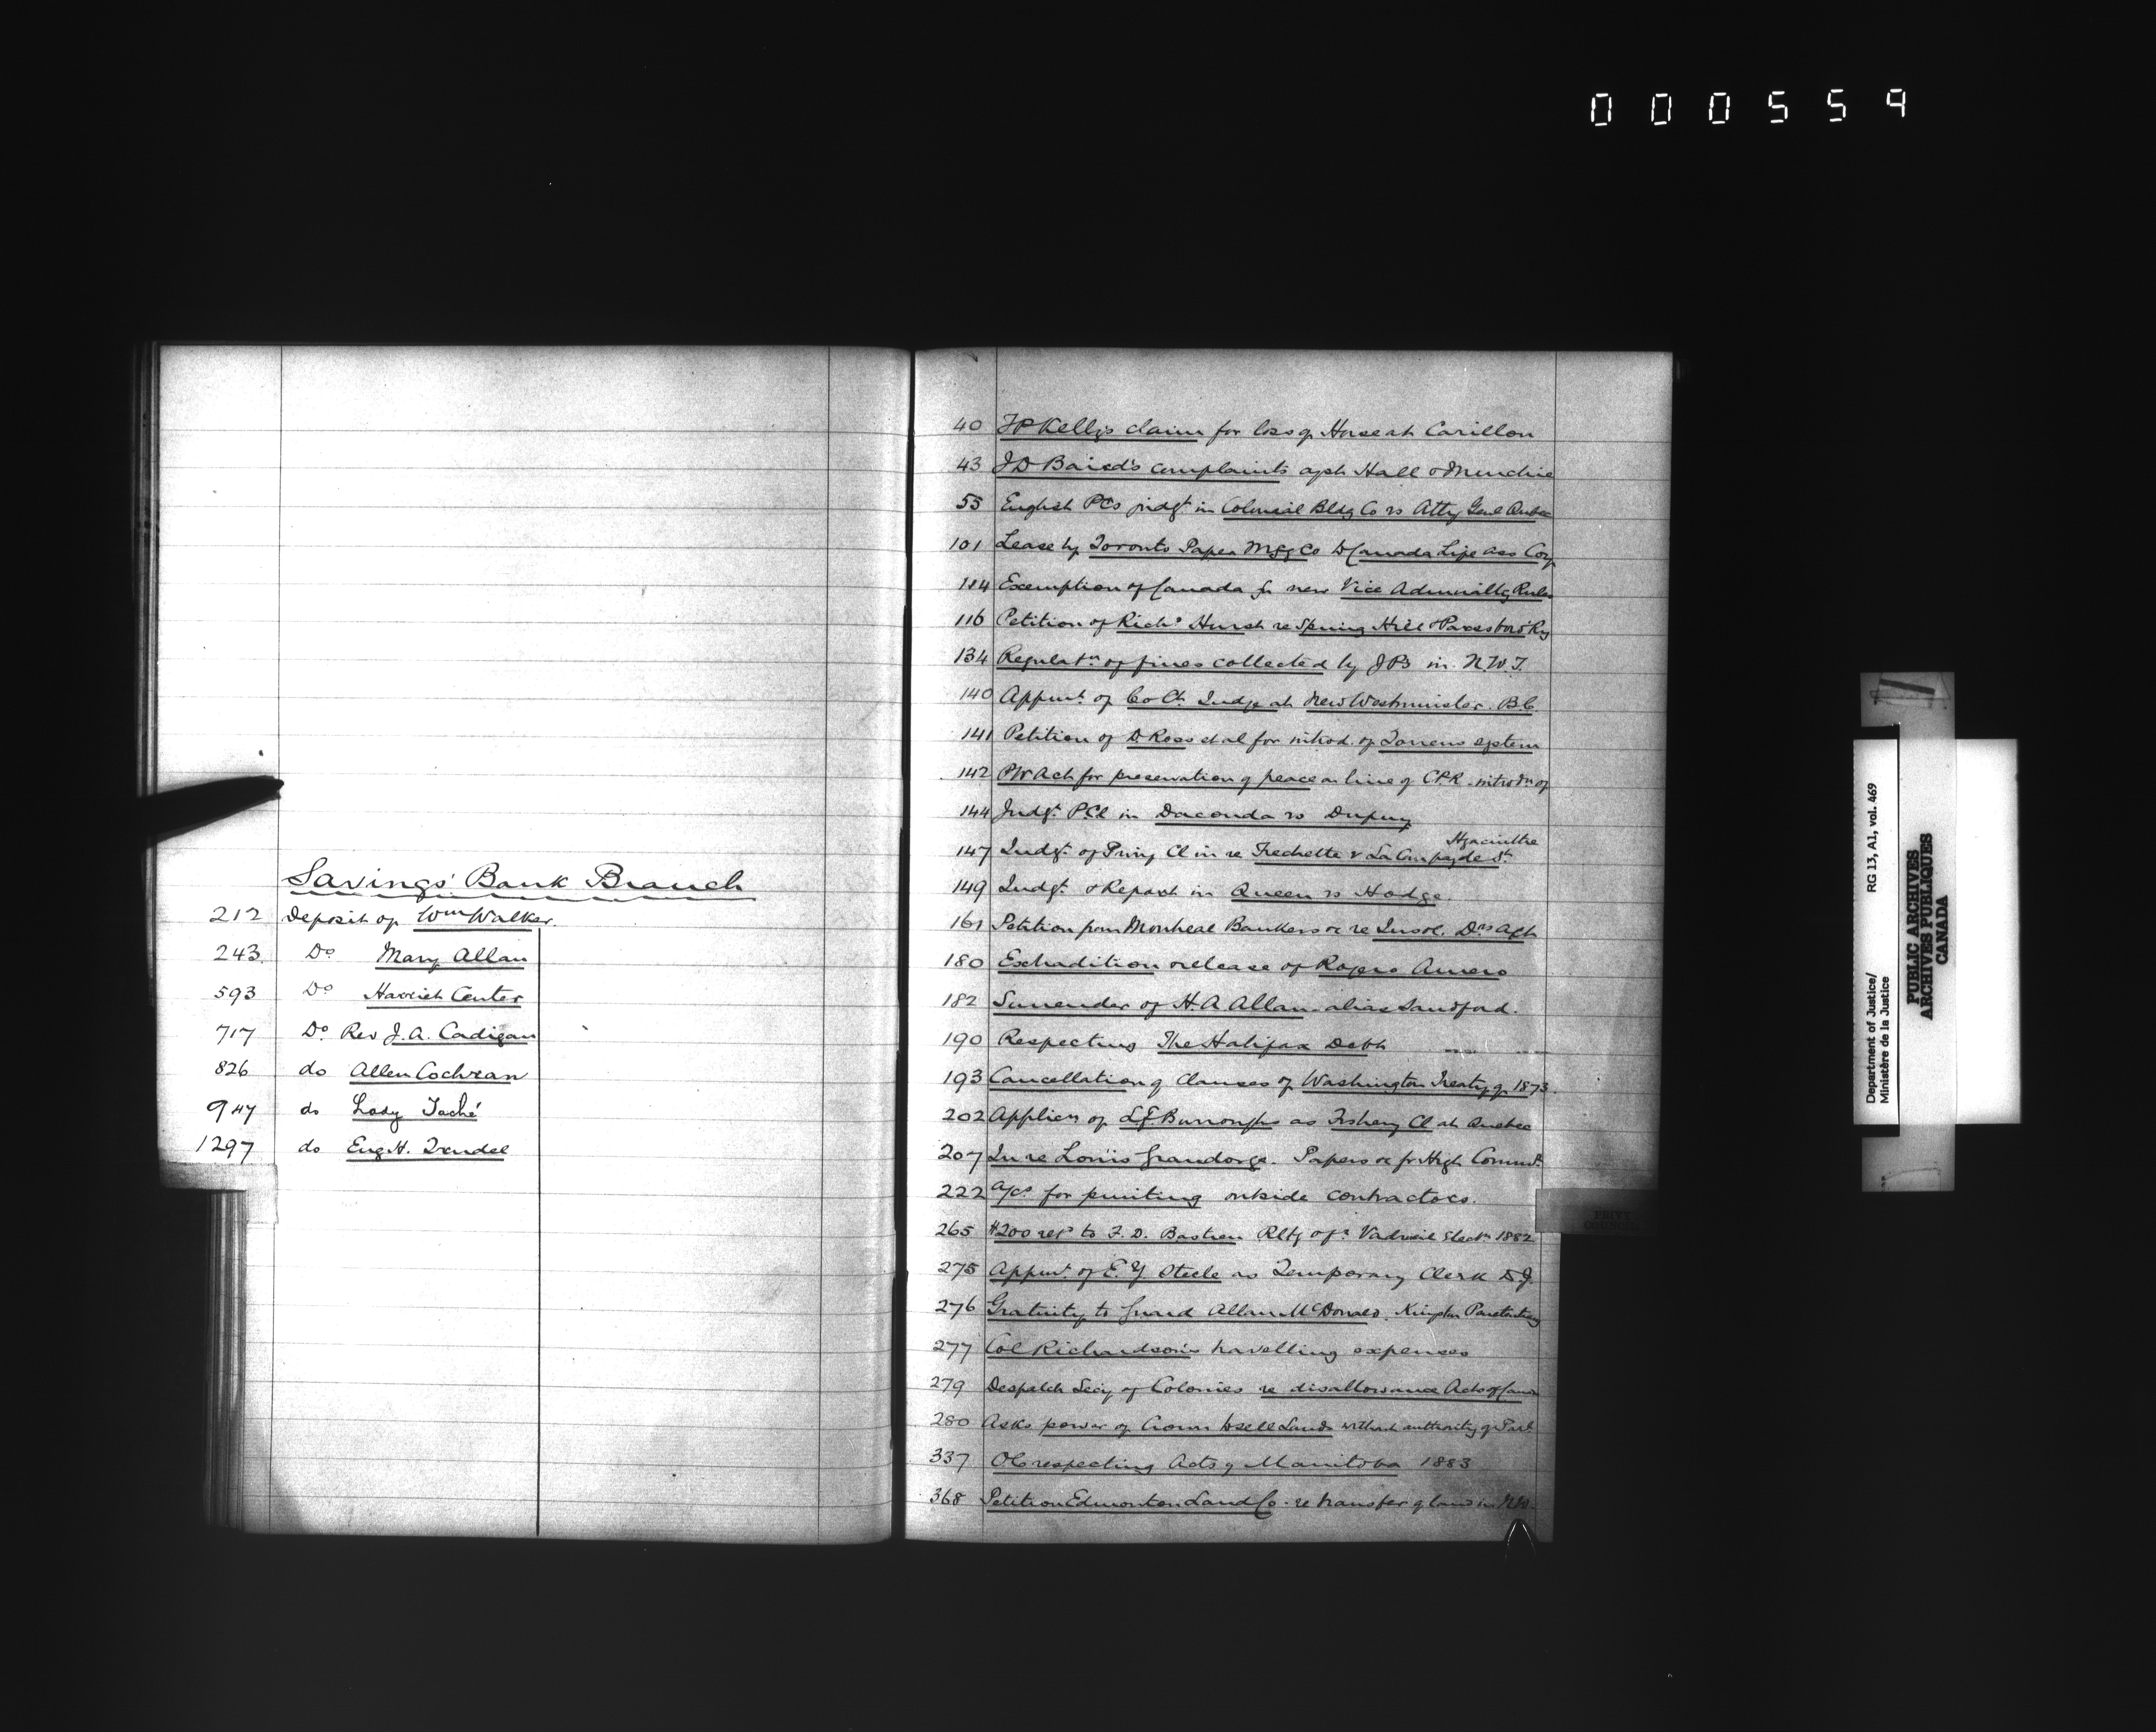 000559
Savings' Bank Branch
212 Deposit of Wm Walker.
243. Do Mary Allan
593 Do Harriet Center
717 Do Rev J. A. Cadigan
826 do Allen Cochran
947 do Lady Taché
1297 do Eug H. Trudel
40 Kelly's claim for loss of Horse at Carillon
43 J D Baird's complaints agst Hall & Murchie
55 English PCs judgt in Colonial Bldg Co vs Atty Genl Quebec
101 Lease by Toronto Paper Mfg Co to Canada Life Ass Coy
114 Exemption of Canada fr new Vice Admiralty Rules
116 Petition of Richd Hurst re Spring Hill & Parrsboro Ry
134 Regulatn of fines collected by JPs in N.W.T.
140 Appmt of Co Ct Judge at New Westminster. B.C.
141 Petition of D. Ross et al for introd. of Torrens system
142 PW Act for preservation of peace on line of C.P.R. introdn of
144 Judgt PCl in Dacouda vs Dupuy
147 Judgt of Privy Cl in re Frechette v La Compag de St. Hyacinthe
149 Judgt & Report in Queen vs Hodge.
161 Petition from Montreal Bankers &c re Insol.
180 Extradition release of Rogero Amero
182 Surrender of H. A Allan alias Sandford.
190 Respecting The Halifax Debt
193 Cancellation of Clauses of Washington Treaty of 1873.
202 Applicn of L.F. Burroughs as Fishery Cl at Quebec
207 In re Louis Grandorge. Papers &c fr High Commr.
222 a/cs for printing outside contractors.
265 $200 to F. D. Bastien Rltg ofr Vadreuil Electn 1882
275 Appmt. of E. Y. Steele as Temporary Clerk D.J.
276 Gratuity to Guard Allan McDonald. Kingston Penitentiary
277 Col Richardson's travelling expenses
279 Despatch Secy of Colonies re disallowance Acts of Canada
280 Asks power of Crown to sell Lands without authority of Parlt
337 OC respecting Acts of Manitoba 1883
368 Petition Edmonton Land Co. re transfer of land in NW.
PRIVY
COUNCIL
Department of Justice/
Ministère de la Justice
RG 13, A1, vol. 469
PUBLIC ARCHIVES
ARCHIVES PUBLIQUES
CANADA